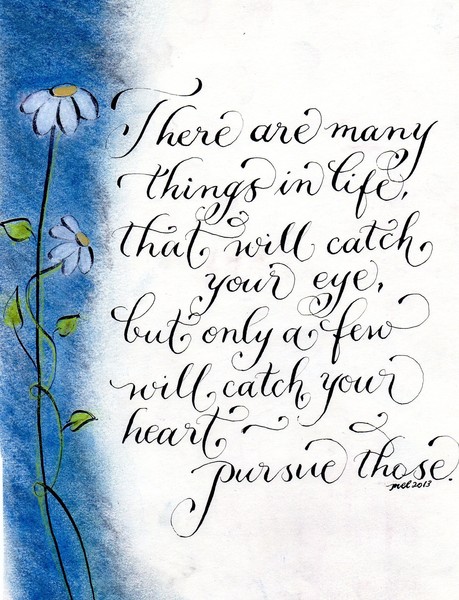 There are many
things in life,
that will catch
your eye,
but only a few
will catch your
heart
pursue those.
mel 2013